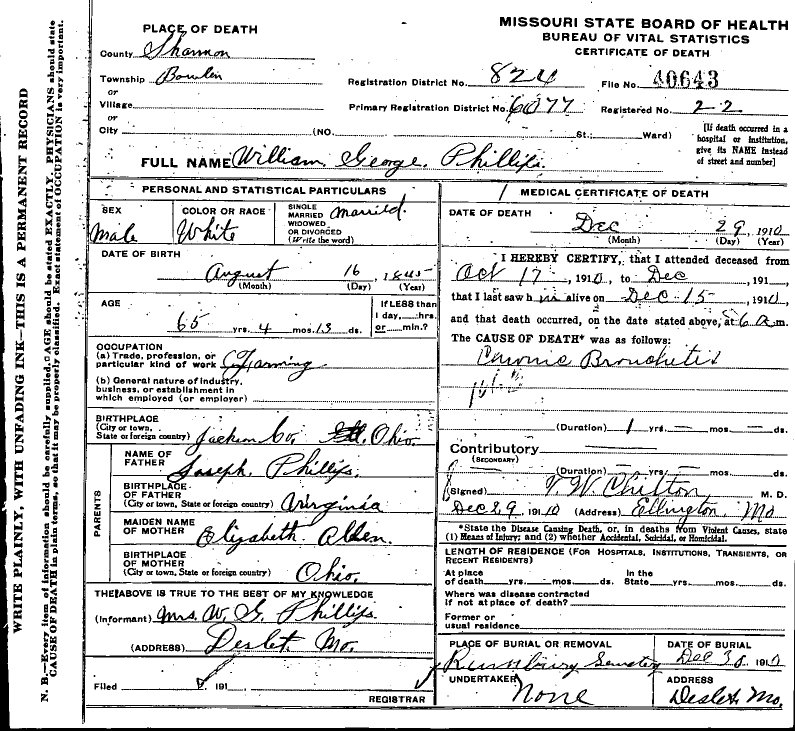 WRITE PLAINLY, WITH UNFADING INK—THIS IS A PERMANENT RECORD
N. B.—Every item of information should be carefully supplied. AGE should be stated EXACTLY. PHYSICIANS should state
CAUSE OF DEATH in plain terms, so that it may be properly classified. Exact statement of OCCUPATION is very important.
MISSOURI STATE BOARD OF HEALTH
BUREAU OF VITAL STATISTICS
CERTIFICATE OF DEATH
PLACE OF DEATH
County Shannon
Township Bowlin
or
Village
or
City (NO. St.; Ward)
Registration District No. 824 File No. 40643
Primary Registration District No. 6077 Registered No. 22
[If death occurred in a
hospital or institution,
give its NAME instead
of street and number]
FULL NAME William George Phillips.
PERSONAL AND STATISTICAL PARTICULARS
SEX
Male
COLOR OR RACE
White
SINGLE
MARRIED
WIDOWED
OR DIVORCED
(Write the word)
Married.
DATE OF BIRTH
August 16, 1845
(Month) (Day) (Year)
AGE
65 yrs. 4 mos. 13 ds.
If LESS than
1 day, hrs.
or min.?
OCCUPATION
(a) Trade, profession, or
particular kind of work Farming
(b) General nature of industry,
business, or establishment in
which employed (or employer)
BIRTHPLACE
(City or town,
State or foreign country) Jackson Co. Ohio.
PARENTS
NAME OF
FATHER
Joseph Phillips.
BIRTHPLACE
OF FATHER
(City or town, State or foreign country) Virginia
MAIDEN NAME
OF MOTHER
Elizabeth
BIRTHPLACE
OF MOTHER
(City or town, State or foreign country)
Ohio.
THE ABOVE IS TRUE TO THE BEST OF MY KNOWLEDGE
(Informant) Mrs. W. G. Phillips.
(ADDRESS) Deslet, Mo.
Filed 191
REGISTRAR
MEDICAL CERTIFICATE OF DEATH
DATE OF DEATH
Dec 29, 1910
(Month) (Day) (Year)
I HEREBY CERTIFY, that I attended deceased from
Oct 17, 1910, to Dec 191
that I last saw him alive on Dec-15- 1910,
and that death occurred, on the date stated above, at 6 a.m.
The CAUSE OF DEATH* was as follows:
Chronic Bronchitis
(Duration) 1 yrs. — mos. — ds.
Contributory
(SECONDARY)
(Duration) — yrs. — mos. — ds.
(Signed) T. W. Chilton M. D.
Dec 29 1910 (Address) Ellington Mo
*State the Disease Causing Death, or, in deaths from Violent Causes, state
(1) Means of Injury; and (2) whether Accidental, Suicidal, or Homicidal.
LENGTH OF RESIDENCE (FOR HOSPITALS, INSTITUTIONS, TRANSIENTS, OR
RECENT RESIDENTS)
At place
of death yrs. mos. ds.
In the
State yrs. mos. ds.
Where was disease contracted
if not at place of death?
Former or
usual residence
PLACE OF BURIAL OR REMOVAL
DATE OF BURIAL
Dec 30 1910
UNDERTAKER
None
ADDRESS
Deslet, Mo.